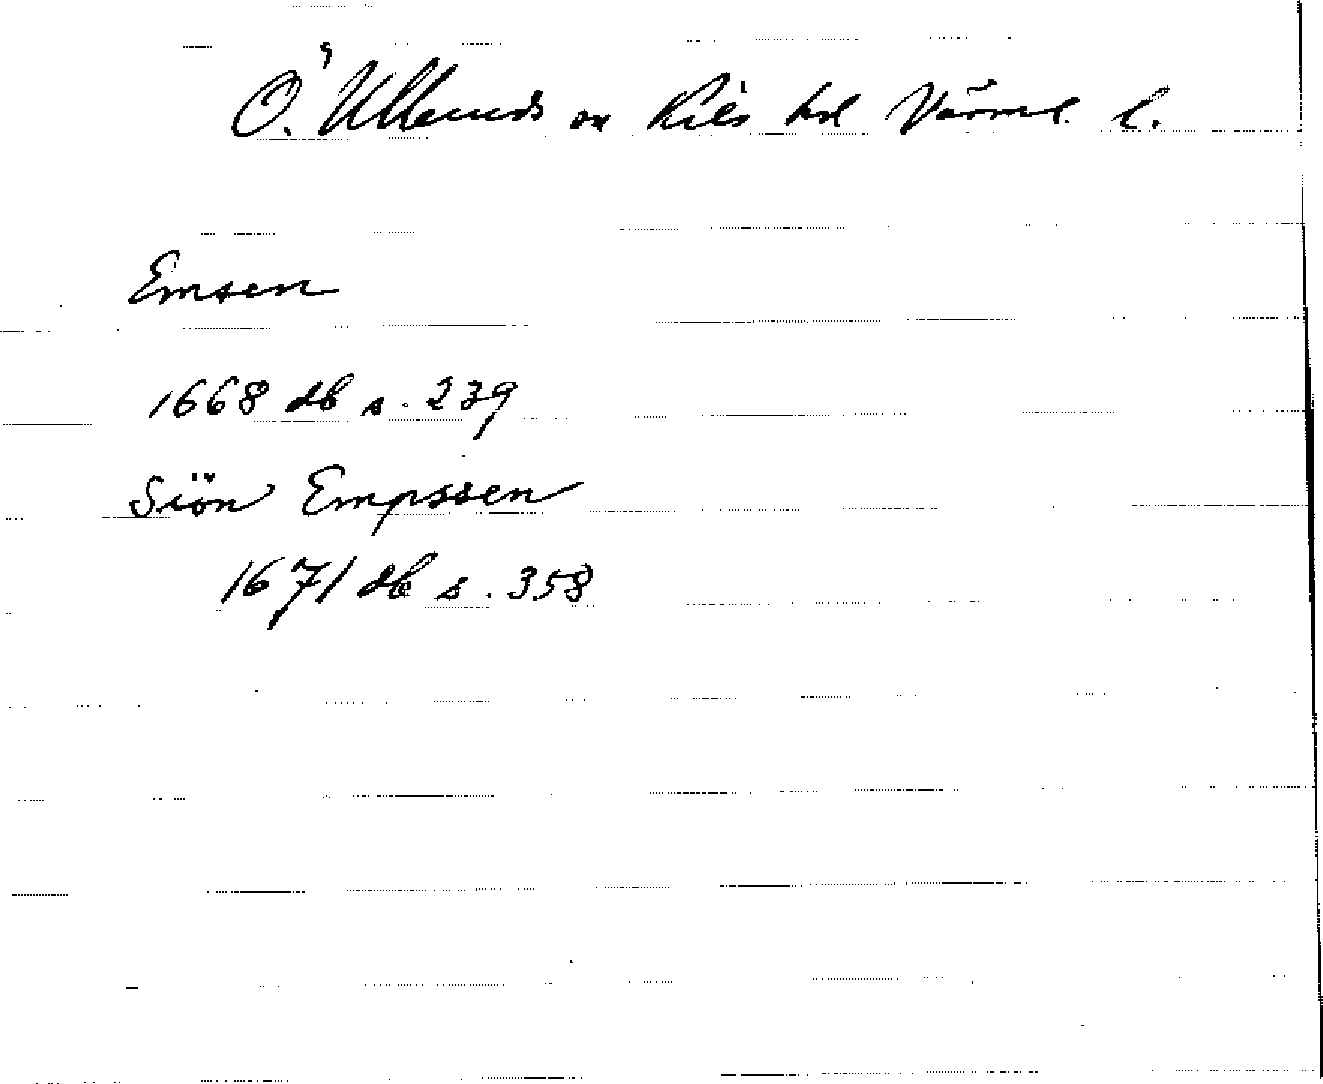 Ö. Ullerud sn Kils hd Värml. l.
Emsen
1668 db s. 239
Siön Empssen
1671 db s. 358